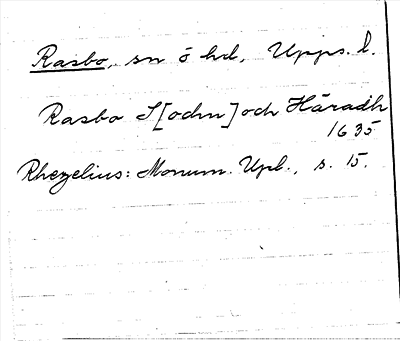 Rasbo, sn o hd, Upps. l.
Rasbo S[ochn] och Häradh
1635
Rhezelius: Monum. Upl., s. 15.